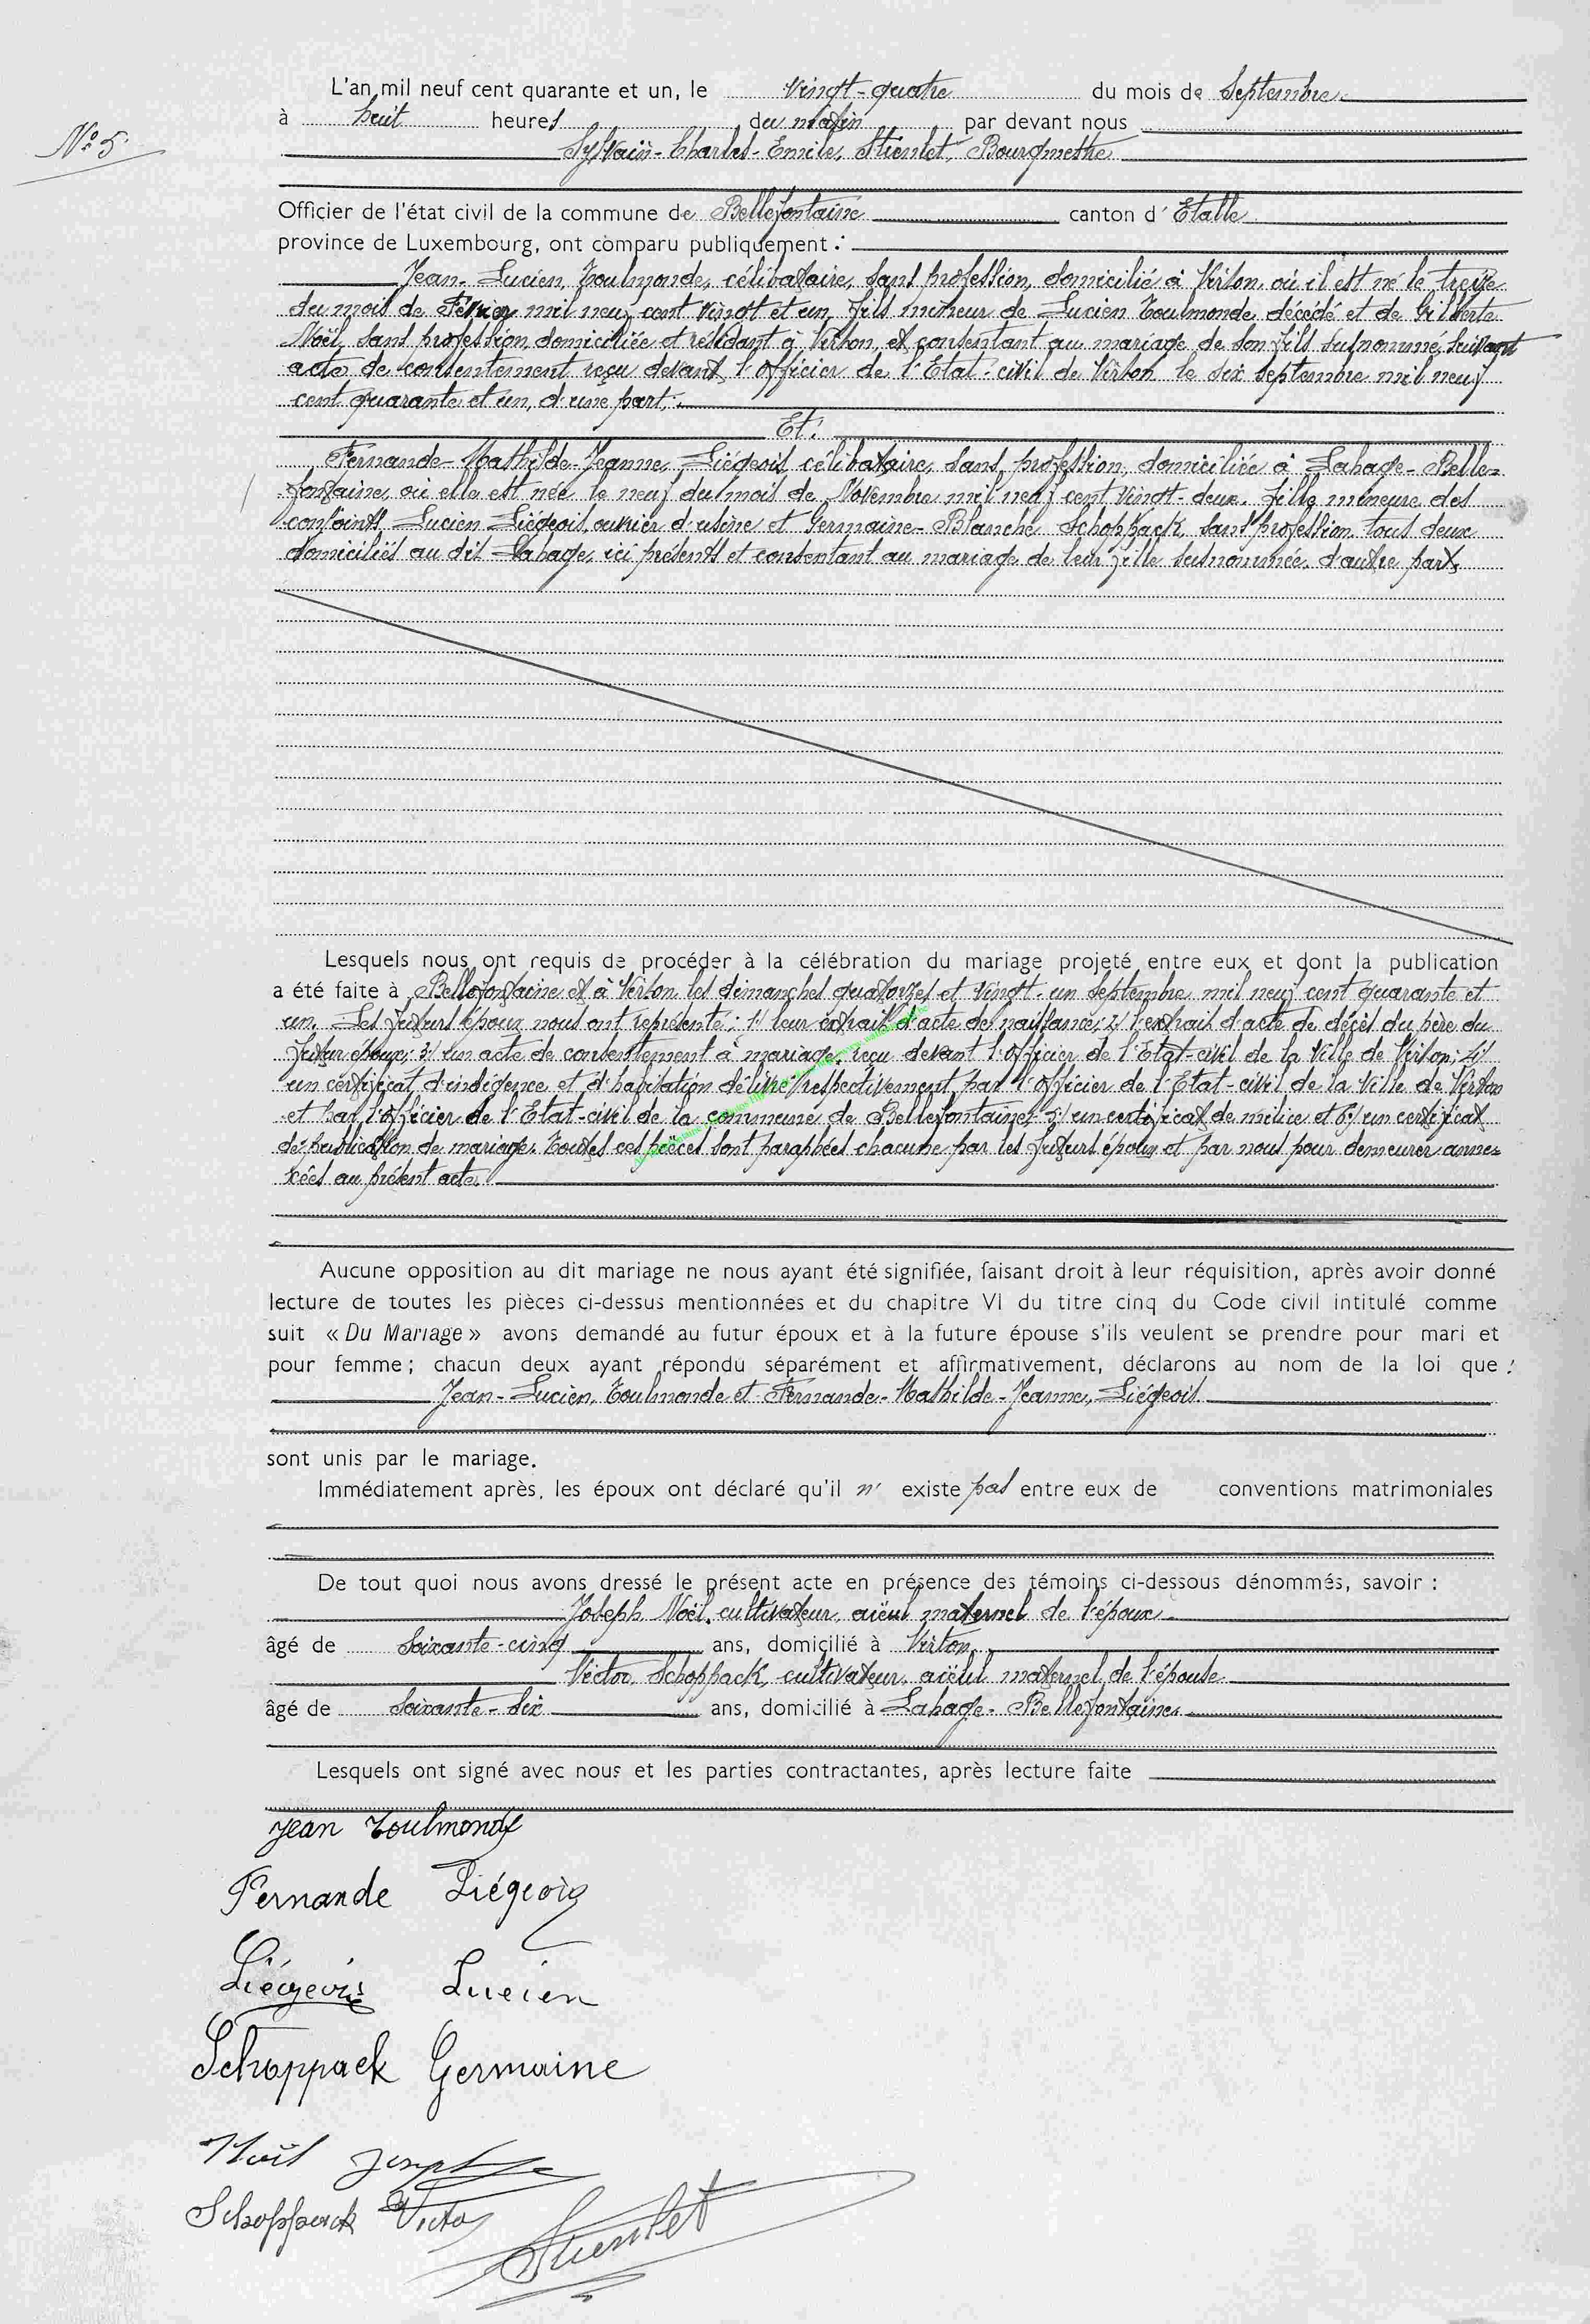 N° 5
L'an mil neuf cent quarante et un, le vingt-quatre du mois de Septembre
à huit heures du matin par devant nous
Sylvain-Charles-Emile, Stienlet, Bourgmestre
Officier de l'état civil de la commune de Bellefontaine canton d'Etalle
province de Luxembourg, ont comparu publiquement :
Jean-Lucien, Toulmonde, célibataire, sans profession, domicilié à Virton où il est né le treize
du mois de Février mil neuf cent vingt et un, fils mineur de Lucien Toulmonde décédé et de Gilberte
Noël, sans profession domiciliée et résidant à Virton, et consentant au mariage de son fils susnommé, suivant
acte de consentement reçu devant l'officier de l'Etat-civil de Virton le six septembre mil neuf
cent quarante et un, d'une part;
Et:
Fernande-Mathilde-Jeanne, Liégeois, célibataire, sans profession, domiciliée à Lahage-Belle=
fontaine, où elle est née le neuf du mois de Novembre mil neuf cent vingt-deux, fille mineure des
conjoints Lucien Liégeois, ouvrier d'usine et Germaine-Blanche Schoppack, sans profession, tous deux
domiciliés au dit Lahage, ici présents et consentant au mariage de leur fille susnommée, d'autre part,
Lesquels nous ont requis de procéder à la célébration du mariage projeté entre eux et dont la publication
a été faite à Bellefontaine et à Virton les dimanches quatorze et vingt-un septembre mil neuf cent quarante et
un. Les futurs époux nous ont représenté : 1/ leur extrait d'acte de naissance; 2/ l'extrait d'acte de décès du père du
futur époux; 3/ un acte de consentement à mariage reçu devant l'officier de l'Etat-civil de la Ville de Virton; 4/
un certificat d'indigence et d'habitation délivré respectivement par l'officier de l'Etat-civil de la Ville de Virton
et par l'officier de l'Etat-civil de la commune de Bellefontaine; 5/ un certificat de milice et 6/ un certificat
de publication de mariage. Toutes ces pièces sont paraphées chacune par les futurs époux et par nous pour demeurer anne=
xées au présent acte.
Aucune opposition au dit mariage ne nous ayant été signifiée, faisant droit à leur réquisition, après avoir donné
lecture de toutes les pièces ci-dessus mentionnées et du chapitre VI du titre cinq du Code civil intitulé comme
suit « Du Mariage » avons demandé au futur époux et à la future épouse s'ils veulent se prendre pour mari et
pour femme ; chacun deux ayant répondu séparément et affirmativement, déclarons au nom de la loi que :
Jean-Lucien, Toulmonde et Fernande-Mathilde-Jeanne, Liégeois.
sont unis par le mariage.
Immédiatement après, les époux ont déclaré qu'il n' existe pas entre eux de conventions matrimoniales
De tout quoi nous avons dressé le présent acte en présence des témoins ci-dessous dénommés, savoir :
Joseph Noël, cultivateur, aïeul maternel de l'époux
âgé de soixante-cinq ans, domicilié à Virton.
Victor Schoppack, cultivateur, aïeul maternel de l'épouse
âgé de soixante-dix ans, domicilié à Lahage-Bellefontaine.
Lesquels ont signé avec nous et les parties contractantes, après lecture faite
Jean Toulmonde
Fernande Liégeois
Liégeois Lucien
Schoppack Germaine
Noël Joseph
Schoppack Victor
Stienlet